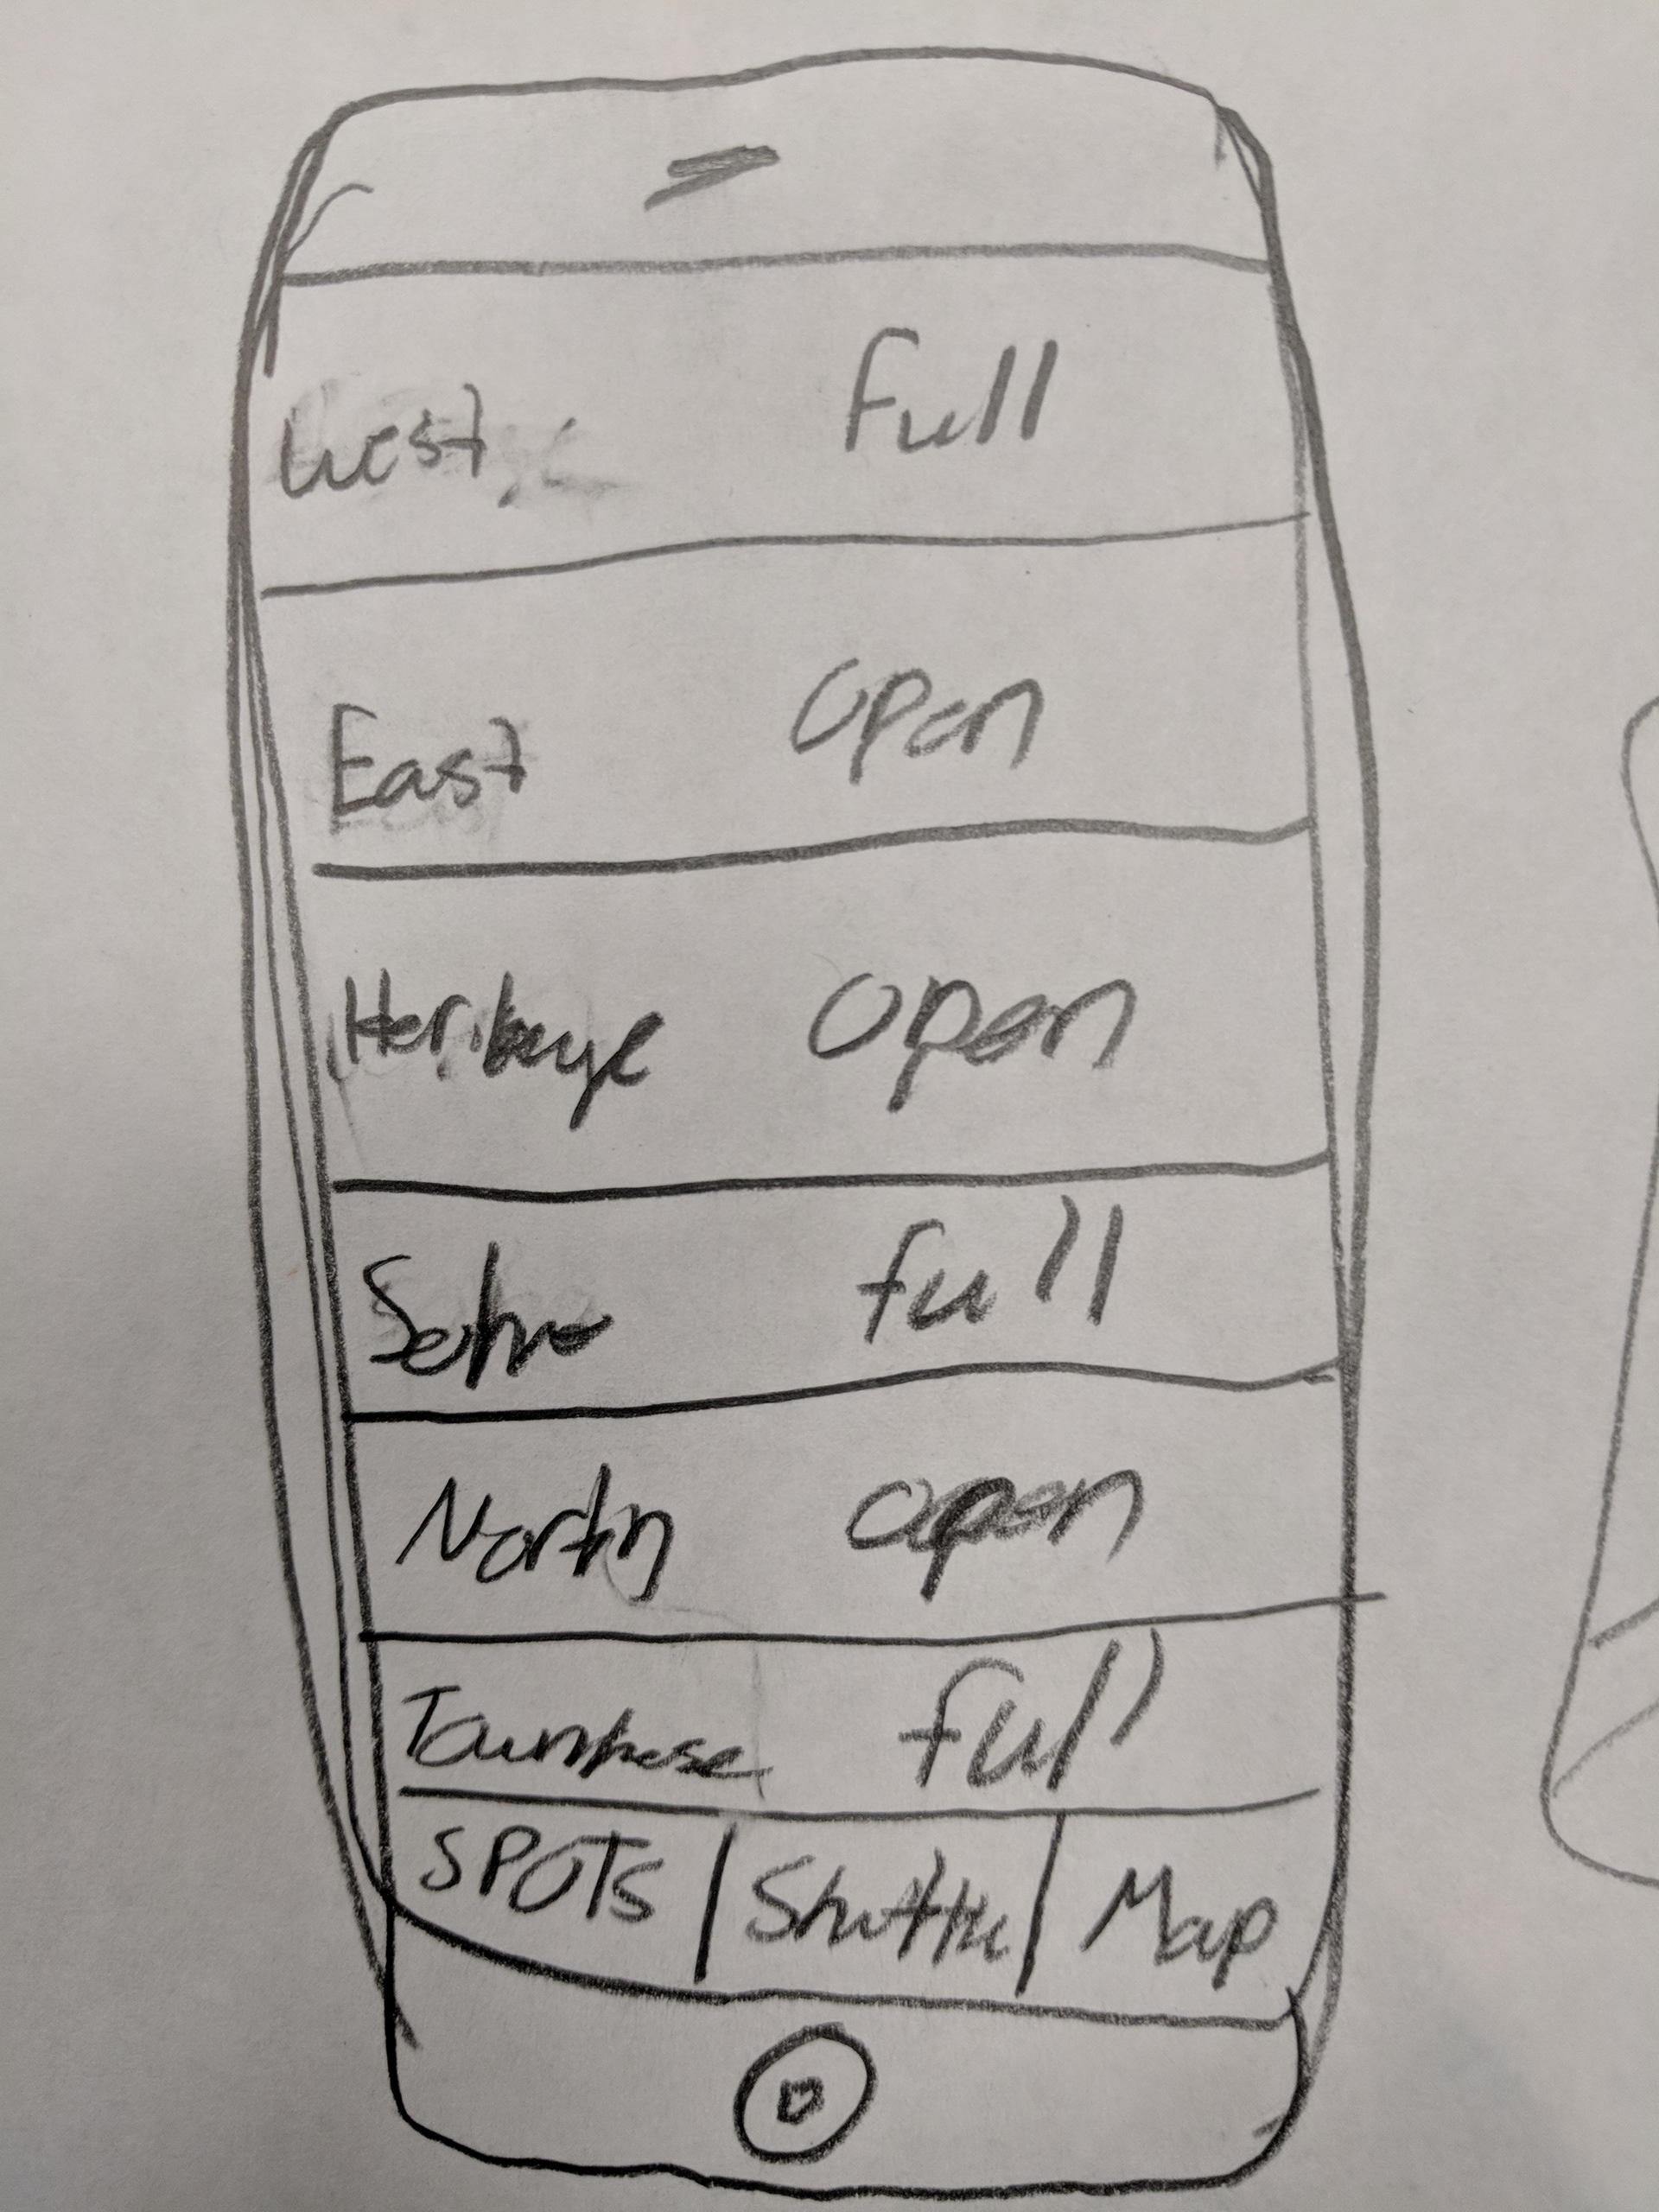 West Full
East Open
Heritage Open
full
North open
Townhouse full
SPOTS Shuttle Map